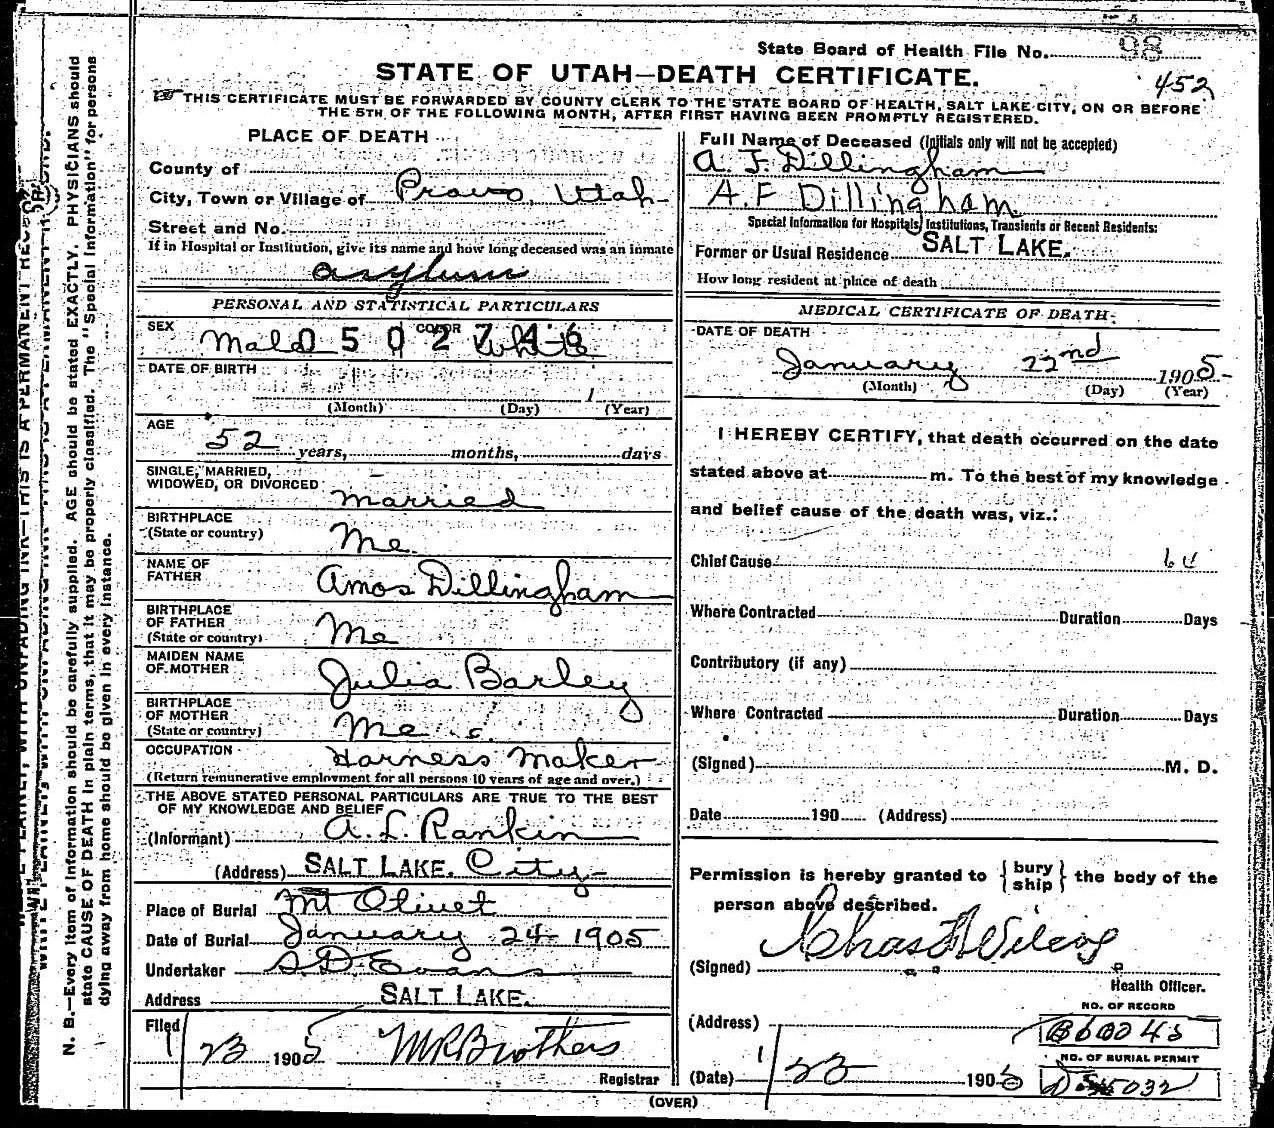 State Board of Health File No. 98
STATE OF UTAH—DEATH CERTIFICATE.
452
THIS CERTIFICATE MUST BE FORWARDED BY COUNTY CLERK TO THE STATE BOARD OF HEALTH, SALT LAKE CITY, ON OR BEFORE
THE 5TH OF THE FOLLOWING MONTH, AFTER FIRST HAVING BEEN PROMPTLY REGISTERED.
PLACE OF DEATH
County of
City, Town or Village of Provo, Utah
Street and No.
If in Hospital or Institution, give its name and how long deceased was an inmate
asylum
PERSONAL AND STATISTICAL PARTICULARS
SEX Male COLOR White
0502746
DATE OF BIRTH
1
(Month) (Day) (Year)
AGE
52 years, months, days
SINGLE, MARRIED,
WIDOWED, OR DIVORCED married
BIRTHPLACE
(State or country) Me.
NAME OF
FATHER Amos Dillingham
BIRTHPLACE
OF FATHER
(State or country) Me
MAIDEN NAME
OF MOTHER Julia Barley
BIRTHPLACE
OF MOTHER
(State or country) Me
OCCUPATION Harness Maker
(Return remunerative employment for all persons 10 years of age and over.)
THE ABOVE STATED PERSONAL PARTICULARS ARE TRUE TO THE BEST
OF MY KNOWLEDGE AND BELIEF
(Informant) A. L. Rankin
(Address) SALT LAKE. City
Place of Burial Mt Olivet
Date of Burial January 24 1905
Undertaker S D Evans
Address SALT LAKE.
Filed 1/23 1905 M R Brothers
Registrar
Full Name of Deceased (Initials only will not be accepted)
A. F. Dillingham
A.F Dillingham
Special Information for Hospitals, Institutions, Transients or Recent Residents:
Former or Usual Residence SALT LAKE.
How long resident at place of death
MEDICAL CERTIFICATE OF DEATH.
DATE OF DEATH
January 22nd 1905
(Month) (Day) (Year)
I HEREBY CERTIFY, that death occurred on the date
stated above at m. To the best of my knowledge
and belief cause of the death was, viz.:
Chief Cause
Where Contracted Duration Days
Contributory (if any)
Where Contracted Duration Days
(Signed) M. D.
Date 190 (Address)
Permission is hereby granted to {bury ship} the body of the
person above described.
(Signed) Chas F Wilcox
Health Officer.
NO. OF RECORD
(Address) B6004s
NO. OF BURIAL PERMIT
(Date) 1/23 1905
(OVER)
N. B.—Every item of Information should be carefully supplied. AGE should be stated EXACTLY. PHYSICIANS should
state CAUSE OF DEATH in plain terms, that it may be properly classified. The "Special Information" for persons
dying away from home should be given in every instance.